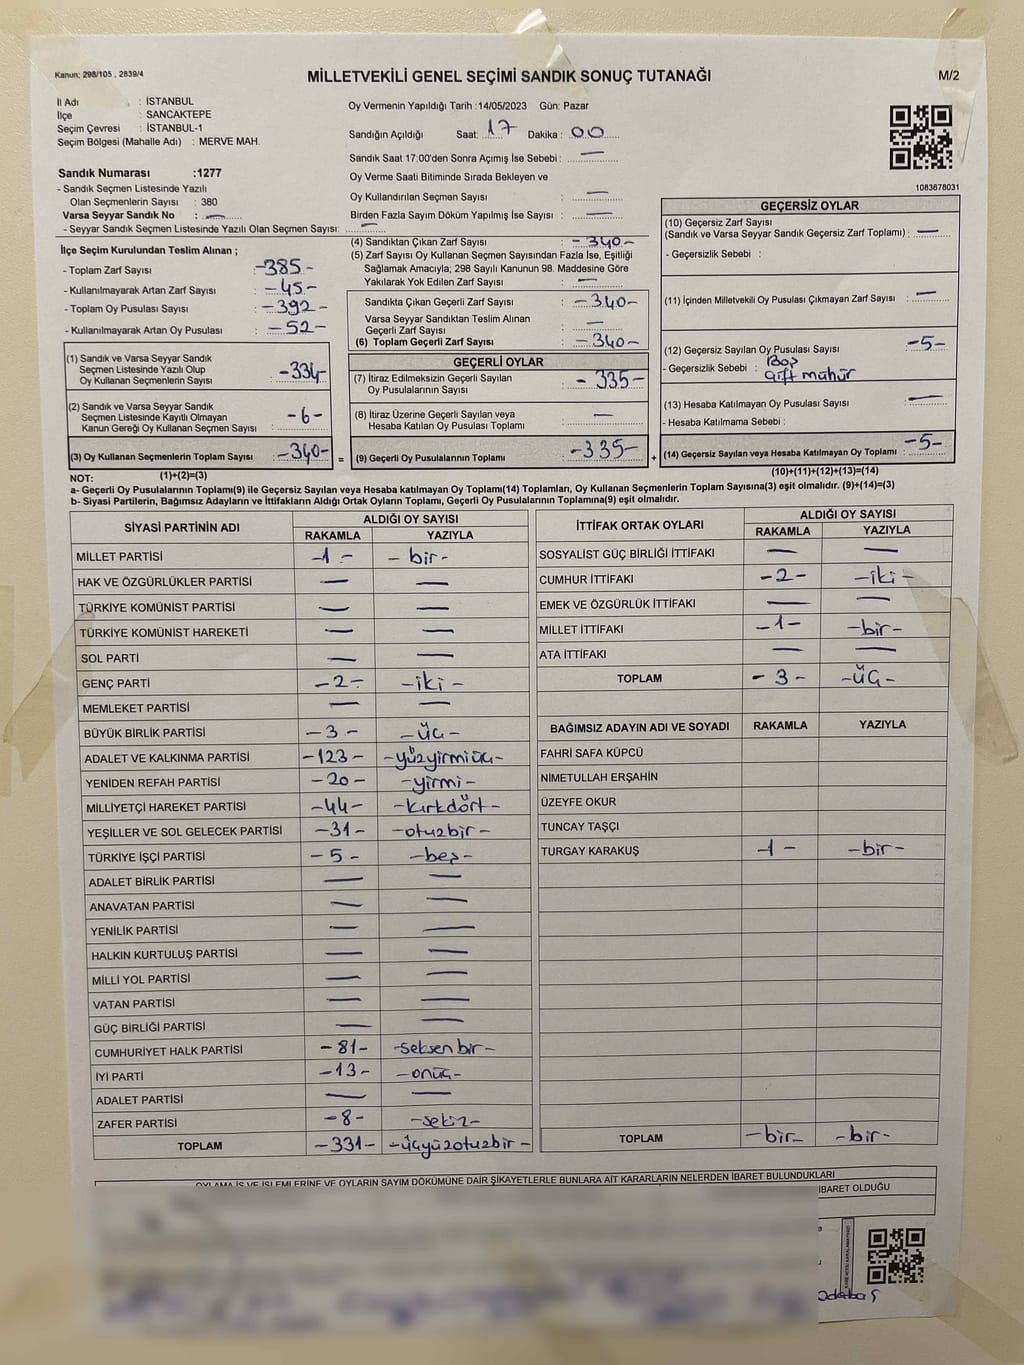 Kanun; 298/105 , 2839/4
MİLLETVEKİLİ GENEL SEÇİMİ SANDIK SONUÇ TUTANAĞI
M/2
İl Adı : İSTANBUL
İlçe : SANCAKTEPE
Seçim Çevresi : İSTANBUL-1
Seçim Bölgesi (Mahalle Adı) : MERVE MAH.
Sandık Numarası :1277
- Sandık Seçmen Listesinde Yazılı
Olan Seçmenlerin Sayısı : 380
Varsa Seyyar Sandık No : —
- Seyyar Sandık Seçmen Listesinde Yazılı Olan Seçmen Sayısı: —
İlçe Seçim Kurulundan Teslim Alınan ;
- Toplam Zarf Sayısı : -385-
- Kullanılmayarak Artan Zarf Sayısı : -45-
- Toplam Oy Pusulası Sayısı : -392-
- Kullanılmayarak Artan Oy Pusulası : -52-
(1) Sandık ve Varsa Seyyar Sandık
Seçmen Listesinde Yazılı Olup
Oy Kullanan Seçmenlerin Sayısı : -334-
(2) Sandık ve Varsa Seyyar Sandık
Seçmen Listesinde Kayıtlı Olmayan
Kanun Gereği Oy Kullanan Seçmen Sayısı : -6-
(3) Oy Kullanan Seçmenlerin Toplam Sayısı : -340-
Oy Vermenin Yapıldığı Tarih :14/05/2023 Gün: Pazar
Sandığın Açıldığı Saat: 17 Dakika : 00
Sandık Saat 17:00'den Sonra Açımış İse Sebebi : —
Oy Verme Saati Bitiminde Sırada Bekleyen ve
Oy Kullandırılan Seçmen Sayısı : —
Birden Fazla Sayım Döküm Yapılmış İse Sayısı : —
(4) Sandıktan Çıkan Zarf Sayısı : -340-
(5) Zarf Sayısı Oy Kullanan Seçmen Sayısından Fazla İse, Eşitliği
Sağlamak Amacıyla; 298 Sayılı Kanunun 98. Maddesine Göre
Yakılarak Yok Edilen Zarf Sayısı : —
Sandıkta Çıkan Geçerli Zarf Sayısı : -340-
Varsa Seyyar Sandıktan Teslim Alınan
Geçerli Zarf Sayısı : —
(6) Toplam Geçerli Zarf Sayısı : -340-
GEÇERLİ OYLAR
(7) İtiraz Edilmeksizin Geçerli Sayılan
Oy Pusulalarının Sayısı : -335-
(8) İtiraz Üzerine Geçerli Sayılan veya
Hesaba Katılan Oy Pusulası Toplamı : —
= (9) Geçerli Oy Pusulalarının Toplamı : -335- +
1083678031
GEÇERSİZ OYLAR
(10) Geçersiz Zarf Sayısı
(Sandık ve Varsa Seyyar Sandık Geçersiz Zarf Toplamı) : —
- Geçersizlik Sebebi :
(11) İçinden Milletvekili Oy Pusulası Çıkmayan Zarf Sayısı : —
(12) Geçersiz Sayılan Oy Pusulası Sayısı : -5-
- Geçersizlik Sebebi : Boş
Çift mühür
(13) Hesaba Katılmayan Oy Pusulası Sayısı : —
- Hesaba Katılmama Sebebi :
(14) Geçersiz Sayılan veya Hesaba Katılmayan Oy Toplamı : -5-
NOT: (1)+(2)=(3) (10)+(11)+(12)+(13)=(14)
a- Geçerli Oy Pusulalarının Toplamı(9) ile Geçersiz Sayılan veya Hesap katılmayan Oy Toplamı(14) Toplamları, Oy Kullanan Seçmenlerin Toplam Sayısına(3) eşit olmalıdır. (9)+(14)=(3)
b- Siyasi Partilerin, Bağımsız Adayların ve İttifakların Aldığı Ortak Oyların Toplamı, Geçerli Oy Pusulalarının Toplamına(9) eşit olmalıdır.
SİYASİ PARTİNİN ADI ALDIĞI OY SAYISI
RAKAMLA YAZIYLA
MİLLET PARTİSİ -1- -bir-
HAK VE ÖZGÜRLÜKLER PARTİSİ — —
TÜRKİYE KOMÜNİST PARTİSİ — —
TÜRKİYE KOMÜNİST HAREKETİ — —
SOL PARTİ — —
GENÇ PARTİ -2- -iki-
MEMLEKET PARTİSİ — —
BÜYÜK BİRLİK PARTİSİ -3- -üç-
ADALET VE KALKINMA PARTİSİ -123- -yüzyirmiüç-
YENİDEN REFAH PARTİSİ -20- -yirmi-
MİLLİYETÇİ HAREKET PARTİSİ -44- -kırkdört-
YEŞİLLER VE SOL GELECEK PARTİSİ -31- -otuzbir-
TÜRKİYE İŞÇİ PARTİSİ -5- -beş-
ADALET BİRLİK PARTİSİ — —
ANAVATAN PARTİSİ — —
YENİLİK PARTİSİ — —
HALKIN KURTULUŞ PARTİSİ — —
MİLLİ YOL PARTİSİ — —
VATAN PARTİSİ — —
GÜÇ BİRLİĞİ PARTİSİ — —
CUMHURİYET HALK PARTİSİ -81- -seksen bir-
İYİ PARTİ -13- -onüç-
ADALET PARTİSİ — —
ZAFER PARTİSİ -8- -sekiz-
TOPLAM -331- -üçyüzotuzbir-
İTTİFAK ORTAK OYLARI ALDIĞI OY SAYISI
RAKAMLA YAZIYLA
SOSYALİST GÜÇ BİRLİĞİ İTTİFAKI — —
CUMHUR İTTİFAKI -2- -iki-
EMEK VE ÖZGÜRLÜK İTTİFAKI — —
MİLLET İTTİFAKI -1- -bir-
ATA İTTİFAKI — —
TOPLAM -3- -üç-
BAĞIMSIZ ADAYIN ADI VE SOYADI RAKAMLA YAZIYLA
FAHRİ SAFA KÜPCÜ
NİMETULLAH ERŞAHİN
ÜZEYFE OKUR
TUNCAY TAŞÇI
TURGAY KARAKUŞ -1- -bir-
TOPLAM -bir- -bir-
OYLAMA İŞ VE İŞLEMLERİNE VE OYLARIN SAYIM DÖKÜMÜNE DAİR ŞİKAYETLERLE BUNLARA AİT KARARLARIN NELERDEN İBARET BULUNDUKLARI
İBARET OLDUĞU